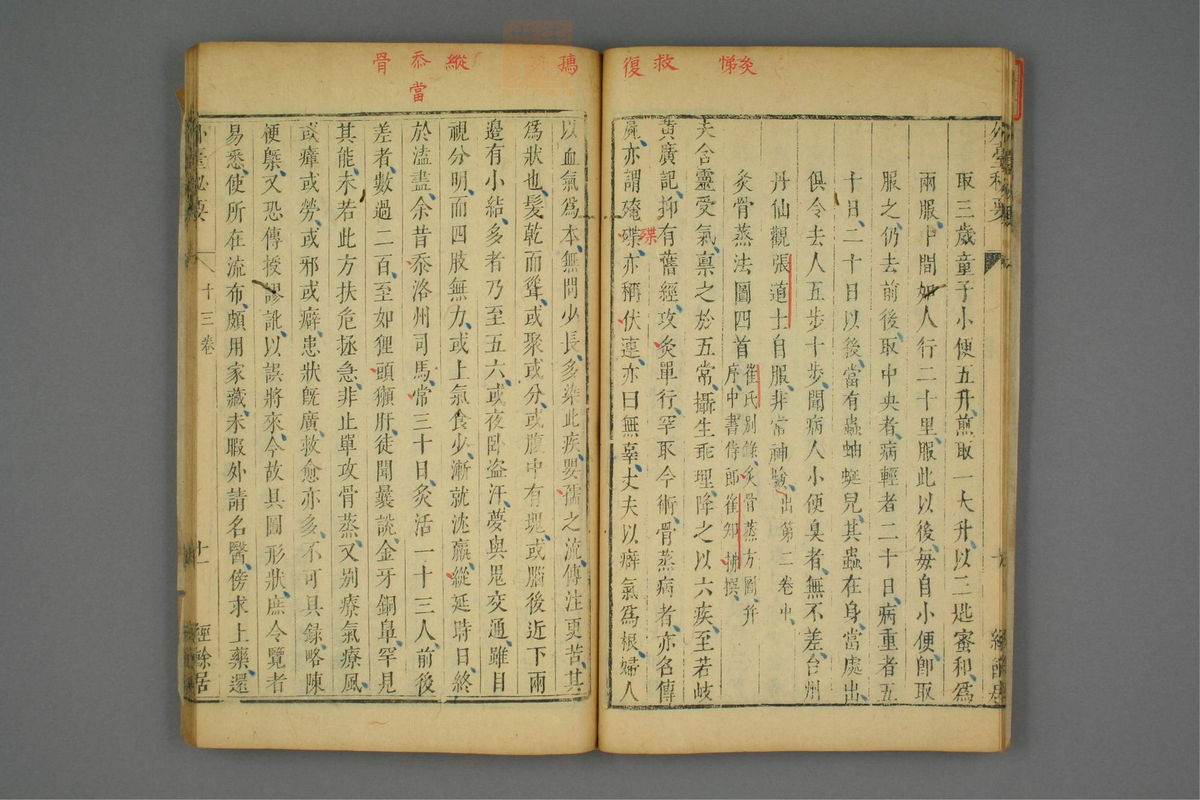 炙
悌
救
復
外臺秘要
取三歲童子小便五升煎取一大升以三匙蜜和爲
兩服中間如人行二十里服此以後每自小便即取
服之仍去前後取中央者病輕者二十日病重者五
十日二十日以後當有蟲蚰蜒兒其蟲在身當處出
俱令去人五步十步聞病人小便臭者無不差台州
丹仙觀張道士自服非常神驗出第二卷中
灸骨蒸法圖四首
崔氏別錄灸骨蒸方圖并
序中書侍郎崔知悌撰
夫含靈受氣稟之於五常攝生乖理降之以六疾至若岐
黃廣記抑有舊經攻灸單行罕取今術骨蒸病者亦名傳
殜
屍亦謂殗碟亦稱伏連亦曰無辜丈夫以癖氣爲根婦人
瑪
縱
忝
當
骨
以血氣爲本無問少長多染此疾嬰孺之流傳注更苦其
爲狀也髮乾而聳或聚或分或腹中有塊或腦後近下兩
邉有小結多者乃至五六或夜臥盗汗夢與鬼交通雖目
視分明而四肢無力或上氣食少漸就沈羸縱延時日終
於溘盡余昔忝洛州司馬常三十日灸活一十三人前後
差者數過二百至如狸頭獺肝徒聞曩說金牙銅鼻罕見
其能未若此方扶危拯急非止單攻骨蒸又别療氣療風
或瘴或勞或邪或癖患狀旣廣救愈亦多不可具録略陳
梗槩又恐傳授謬訛以誤將來今故具圖形狀庶令覽者
易悉使所在流布頗用家藏未暇外請名醫傍求上藥還
外臺秘要
十三卷
十一
經餘居